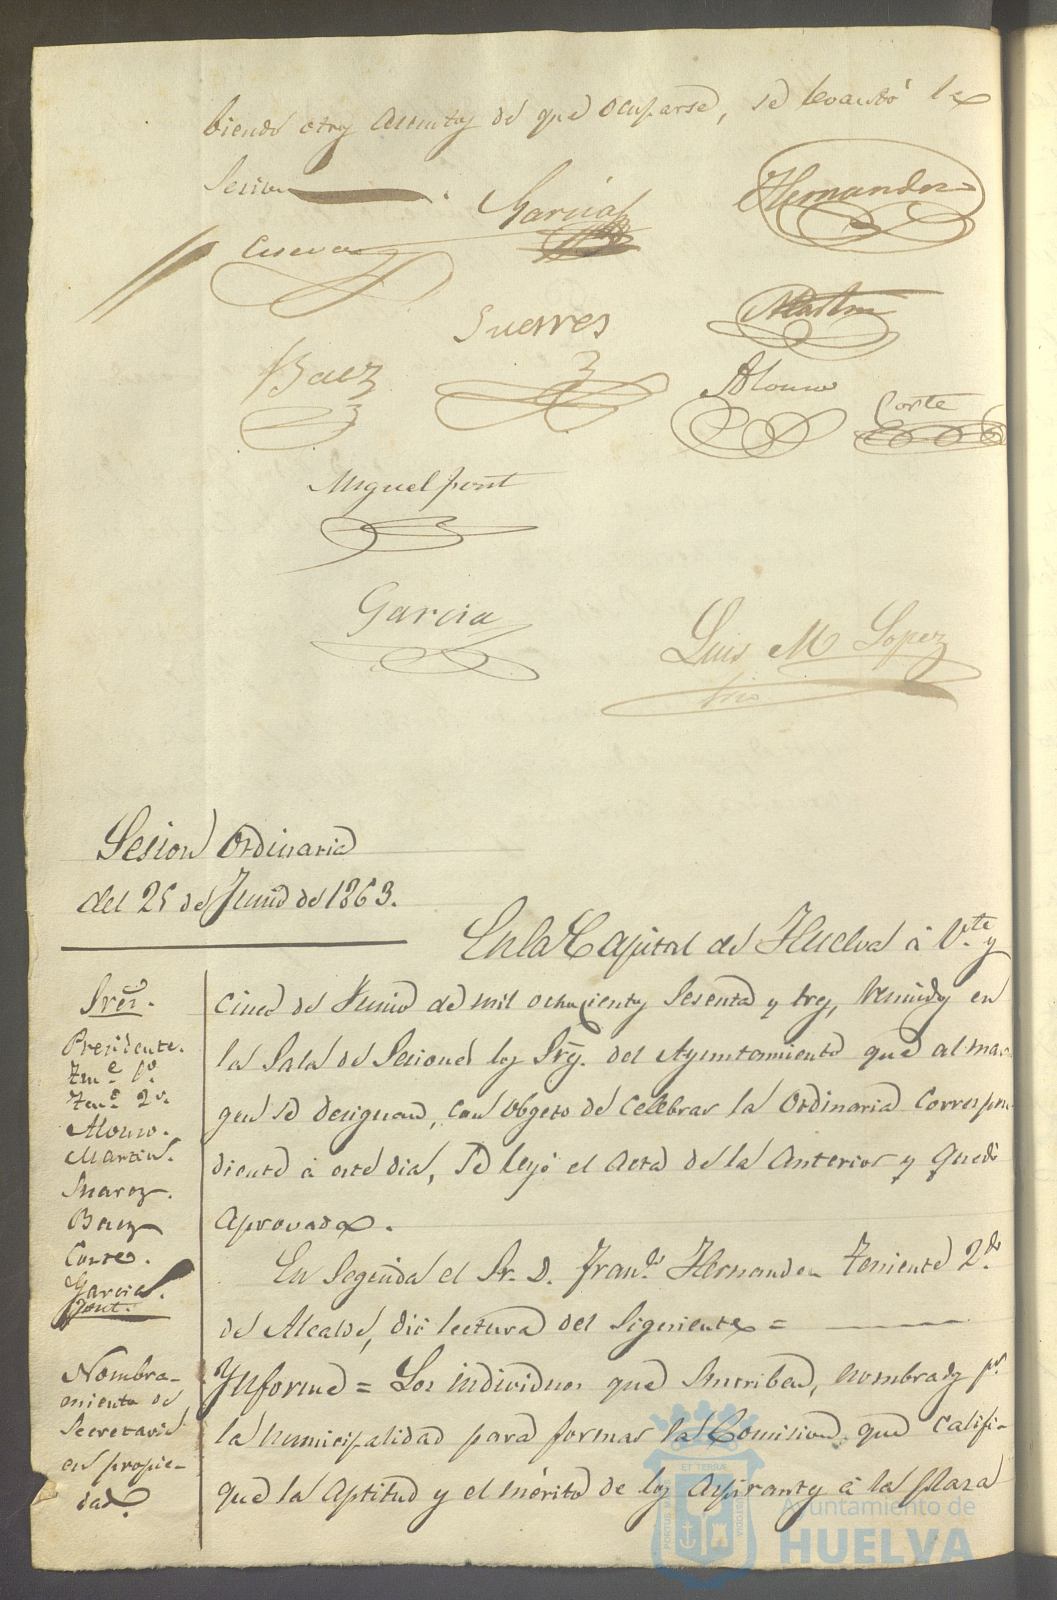 biendo otros asuntos de que ocuparse, se levantó la
Sesion
Garcia
Hernandez
Cueva
Suarez
Martin
Baez
Alonso
Corte
Miguel font
Garcia
Luis M Lopez
Srio
Sesion Ordinaria
del 25 de Junio de 1863.
En la Capital de Huelva á Vte y
Sres.
cinco de Junio de mil ochocientos sesenta y tres, reunidos en
Presidente.
Tnte 1º
la Sala de Sesiones los Sres. del Ayuntamiento que al mar
Tnte 2º
gen se designan, con obgeto de celebrar la Ordinaria correspon
Alonso.
Martin.
diente á este dia, se leyó el acta de la anterior y quedó
Suarez.
Baez
aprovada.
Corte.
En Seguida el Sr. D. Franco Hernandez Teniente 2do
Garcia.
Font.
de Alcalde, dió lectura del Siguiente =
Nombra-
miento de
Secretario
en propie-
dad.
Ynforme = Los individuos que Suscriben, nombrados pr
la municipalidad para formar la Comision que califi-
que la aptitud y el mérito de los aspirantes á la plaza
ET TERRAE
PORTUS MARIS
CUSTODIA
Ayuntamiento de
HUELVA